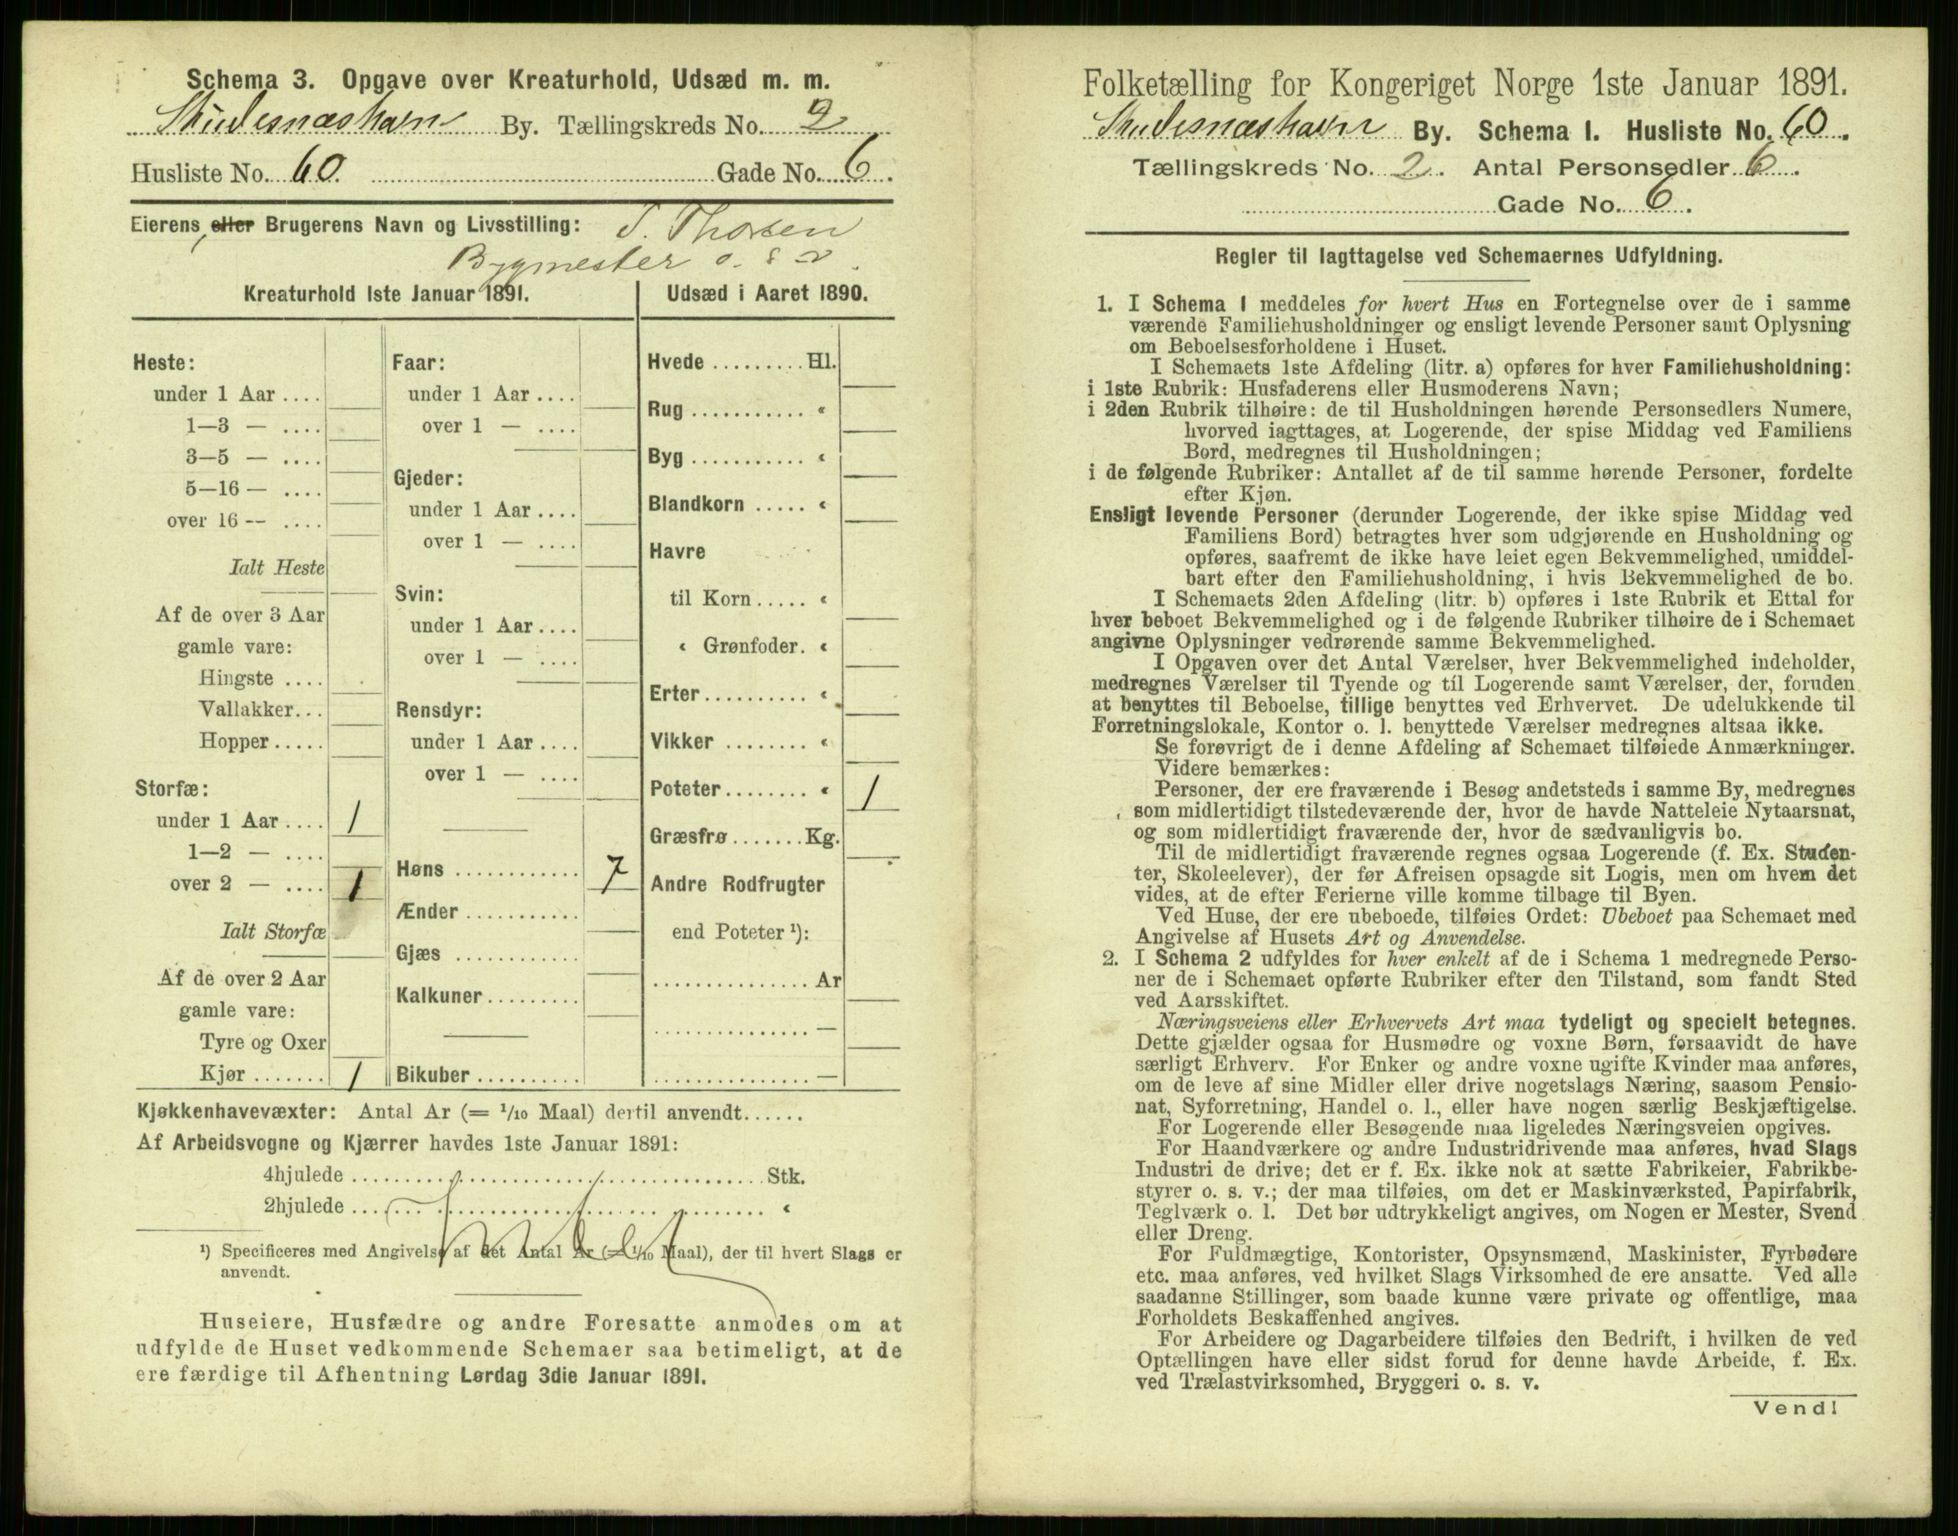 Schema 3. Opgave over Kreaturhold, Udsæd m. m.
Skudesnæshavn By. Tællingskreds No. 2
Husliste No. 60. Gade No. 6.
Eierens, eller Brugerens Navn og Livsstilling: T. Thorsen
Bygmester o. s v.
Kreaturhold 1ste Januar 1891. Udsæd i Aaret 1890.
Heste:
under 1 Aar ....
1—3 — ....
3—5 — ....
5—16 — ....
over 16 — ....
Ialt Heste
Af de over 3 Aar
gamle vare:
Hingste ....
Vallakker...
Hopper.....
Storfæ:
under 1 Aar .... 1
1—2 — ....
over 2 — .... 1
Ialt Storfæ
Af de over 2 Aar
gamle vare:
Tyre og Oxer
Kjør ....... 1
Faar:
under 1 Aar ....
over 1 — ....
Gjeder:
under 1 Aar ....
over 1 — ....
Svin:
under 1 Aar ....
over 1 — ....
Rensdyr:
under 1 Aar ....
over 1 — ....
Høns ............ 7
Ænder ...........
Gjæs ............
Kalkuner.........
Bikuber..........
Hvede .........Hl.
Rug ........... «
Byg ........... «
Blandkorn ..... «
Havre
til Korn..... «
« Grønfoder. «
Erter.......... «
Vikker ........ «
Poteter........ « 1
Græsfrø.......Kg.
Andre Rodfrugter
end Poteter ¹):
...............Ar
...............—
...............—
Kjøkkenhavevæxter: Antal Ar (= 1/10 Maal) dertil anvendt......
Af Arbeidsvogne og Kjærrer havdes 1ste Januar 1891:
4hjulede ........................................ Stk.
2hjulede ........................................ «
¹) Specificeres med Angivelse af det Antal Ar (= 1/10 Maal), der til hvert Slags er
anvendt.
Huseiere, Husfædre og andre Foresatte anmodes om at
udfylde de Huset vedkommende Schemaer saa betimeligt, at de
ere færdige til Afhentning Lørdag 3die Januar 1891.
Folketælling for Kongeriget Norge 1ste Januar 1891.
Skudesnæshavn By. Schema I. Husliste No. 60.
Tællingskreds No. 2. Antal Personsedler 6.
Gade No. 6.
Regler til Iagttagelse ved Schemaernes Udfyldning.
1. I Schema I meddeles for hvert Hus en Fortegnelse over de i samme
værende Familiehusholdninger og ensligt levende Personer samt Oplysning
om Beboelsesforholdene i Huset.
I Schemaets 1ste Afdeling (litr. a) opføres for hver Familiehusholdning:
i 1ste Rubrik: Husfaderens eller Husmoderens Navn;
i 2den Rubrik tilhøire: de til Husholdningen hørende Personsedlers Numere,
hvorved iagttages, at Logerende, der spise Middag ved Familiens
Bord, medregnes til Husholdningen;
i de følgende Rubriker: Antallet af de til samme hørende Personer, fordelte
efter Kjøn.
Ensligt levende Personer (derunder Logerende, der ikke spise Middag ved
Familiens Bord) betragtes hver som udgjørende en Husholdning og
opføres, saafremt de ikke have leiet egen Bekvemmelighed, umiddel-
bart efter den Familiehusholdning, i hvis Bekvemmelighed de bo.
I Schemaets 2den Afdeling (litr. b) opføres i 1ste Rubrik et Ettal for
hver beboet Bekvemmelighed og i de følgende Rubriker tilhøire de i Schemaet
angivne Oplysninger vedrørende samme Bekvemmelighed.
I Opgaven over det Antal Værelser, hver Bekvemmelighed indeholder,
medregnes Værelser til Tyende og til Logerende samt Værelser, der, foruden
at benyttes til Beboelse, tillige benyttes ved Erhvervet. De udelukkende til
Forretningslokale, Kontor o. l. benyttede Værelser medregnes altsaa ikke.
Se forøvrigt de i denne Afdeling af Schemaet tilføiede Anmærkninger.
Videre bemærkes:
Personer, der ere fraværende i Besøg andetsteds i samme By, medregnes
som midlertidigt tilstedeværende der, hvor de havde Natteleie Nytaarsnat,
og som midlertidigt fraværende der, hvor de sædvanligvis bo.
Til de midlertidigt fraværende regnes ogsaa Logerende (f. Ex. Studen-
ter, Skoleelever), der før Afreisen opsagde sit Logis, men om hvem det
vides, at de efter Ferierne ville komme tilbage til Byen.
Ved Huse, der ere ubeboede, tilføies Ordet: Ubeboet paa Schemaet med
Angivelse af Husets Art og Anvendelse.
2. I Schema 2 udfyldes for hver enkelt af de i Schema 1 medregnede Perso-
ner de i Schemaet opførte Rubriker efter den Tilstand, som fandt Sted
ved Aarsskiftet.
Næringsveiens eller Erhvervets Art maa tydeligt og specielt betegnes.
Dette gjælder ogsaa for Husmødre og voxne Børn, forsaavidt de have
særligt Erhverv. For Enker og andre voxne ugifte Kvinder maa anføres,
om de leve af sine Midler eller drive nogetslags Næring, saasom Pensio-
nat, Syforretning, Handel o. l., eller have nogen særlig Beskjæftigelse.
For Logerende eller Besøgende maa ligeledes Næringsveien opgives.
For Haandværkere og andre Industridrivende maa anføres, hvad Slags
Industri de drive; det er f. Ex. ikke nok at sætte Fabrikeier, Fabrikbe-
styrer o. s. v.; der maa tilføies, om det er Maskinværksted, Papirfabrik,
Teglværk o. l. Det bør udtrykkeligt angives, om Nogen er Mester, Svend
eller Dreng.
For Fuldmægtige, Kontorister, Opsynsmænd, Maskinister, Fyrbødere
etc. maa anføres, ved hvilket Slags Virksomhed de ere ansatte. Ved alle
saadanne Stillinger, som baade kunne være private og offentlige, maa
Forholdets Beskaffenhed angives.
For Arbeidere og Dagarbeidere tilføies den Bedrift, i hvilken de ved
Optællingen have eller sidst forud for denne havde Arbeide, f. Ex.
ved Trælastvirksomhed, Bryggeri o. s. v.
Vend!